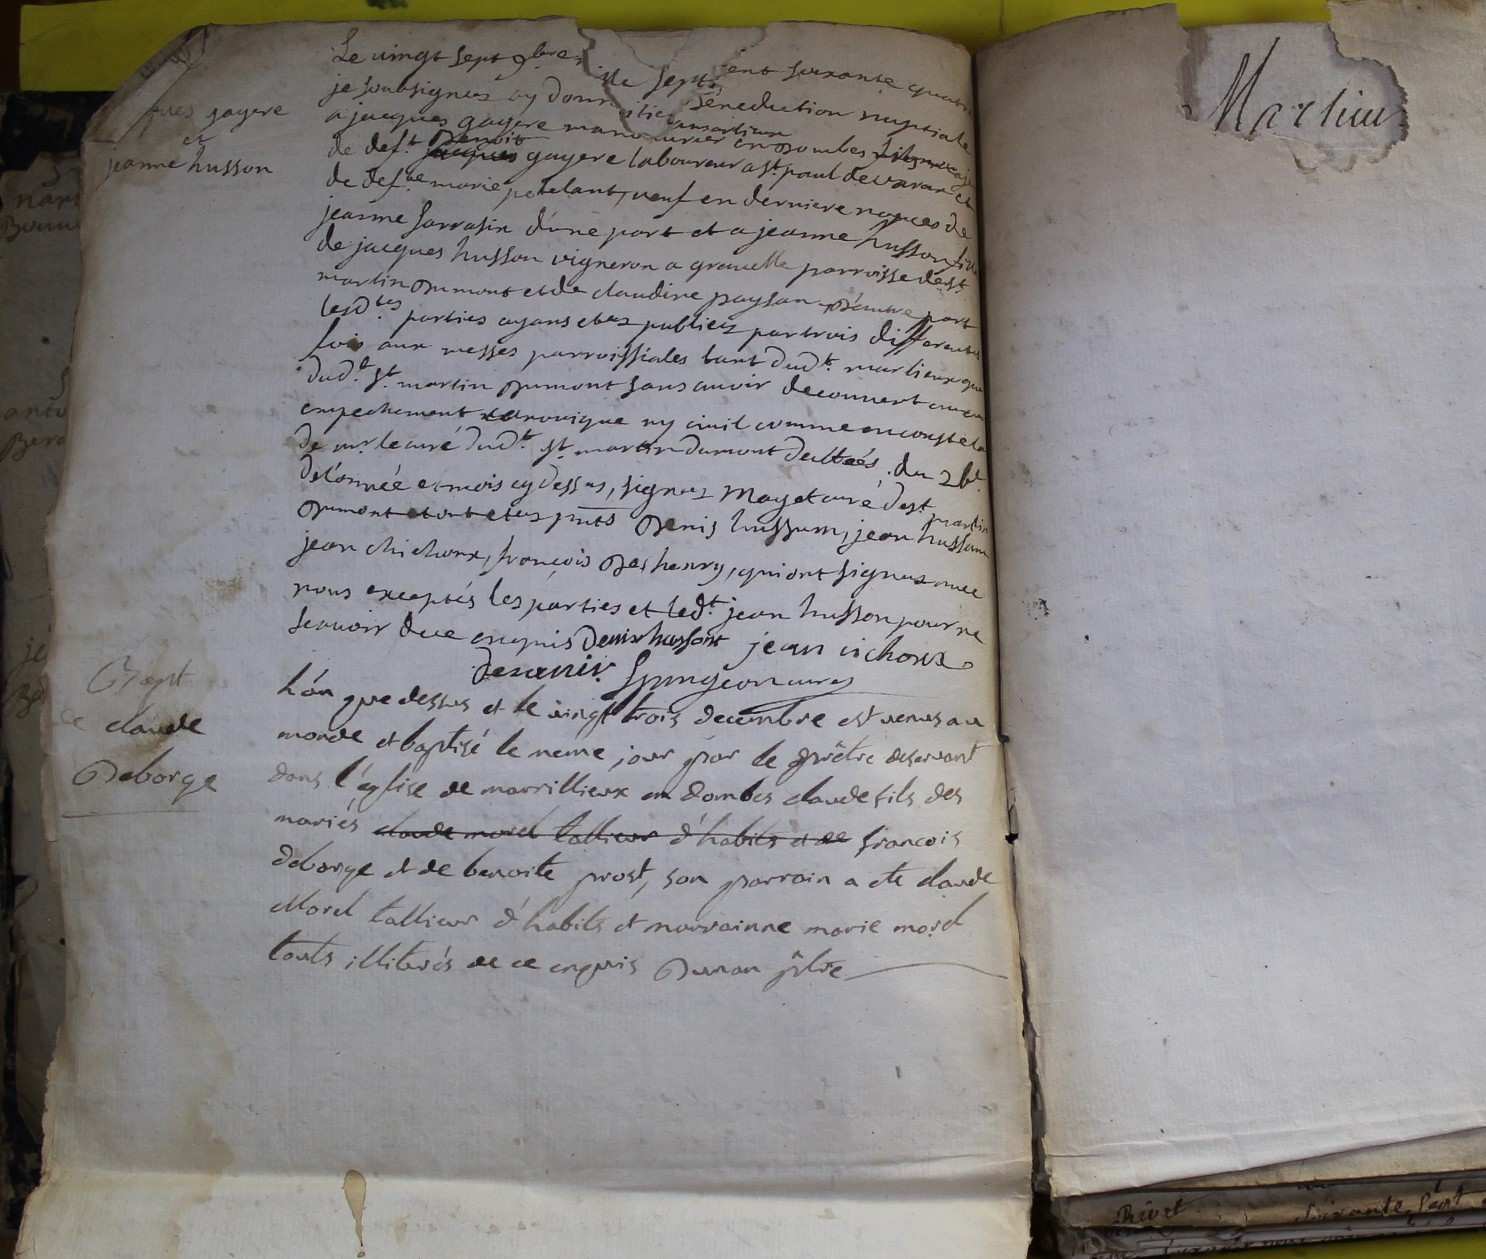 Le vingt sept 9bre
jques gayere
et
jeanne husson
je soubsignez ay donn la benediction nuptiale
a jacques gayere manouvrier en Dombes
de deft. Benoit gayere laboureur a st. paul de varax et
de defte marie petelant, veuf en derniere nopces de
jeanne sarrasin d'une part et a jeanne husson fille
de jacques husson vigneron a gravelle parroisse de st.
martin Dumont et de claudine paysan D'autre part
lesdtes parties ayans etez publiez par trois differentes
fois aux messes parroissiales tant dudt. marlieux que
dudt. st. martin Dumont sans avoir decouvert aucun
empechement canonique ny civil comme en conste
de mr. le curé dudt. st. martin dumont du 26e.
De l'année et mois cy dessus, signez Moyet curé de st martin
Dumont et ont etez pnts Denis husson, jean husson
jean chichoux, françois Deshenry, qui ont signez avec
nous exceptés les parties et ledt. jean husson pour ne
scavoir de ce enquis Denis hussont jean vichoux
Spingeon curé
Bapt
de claude
Deborge
L'an que dessus et le vingt trois decembre est venus au
monde et baptisé le meme jour par le prêtre deservant
dans l'église de marrillieux en dombes claude fils des
mariés claude morel tallieur d'habits et de francois
deborge et de benoite prost, son parrain a ete claude
Morel tallieur d'habits et marrainne marie morel
touts illiterés de ce enquis Dunan ptre
Marlieux
Rivet
soixante sept